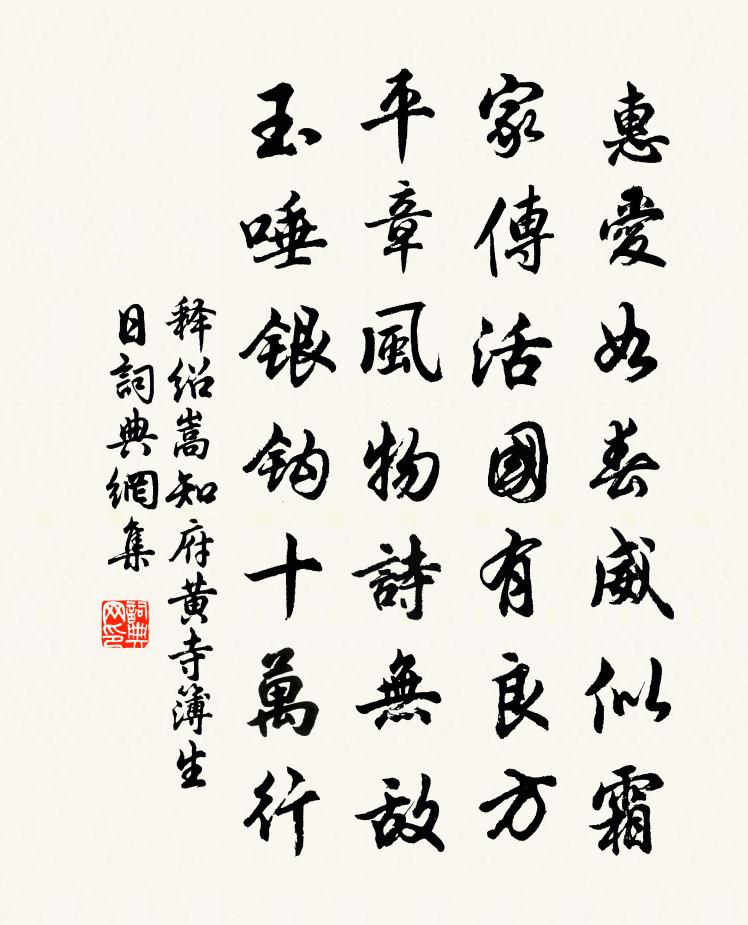 惠愛如春威似霜
家傳活國有良方
平章風物詩無敵
玉唾銀鈎十萬行
释绍嵩知府黄寺簿生
日詞典網集
詞典网印